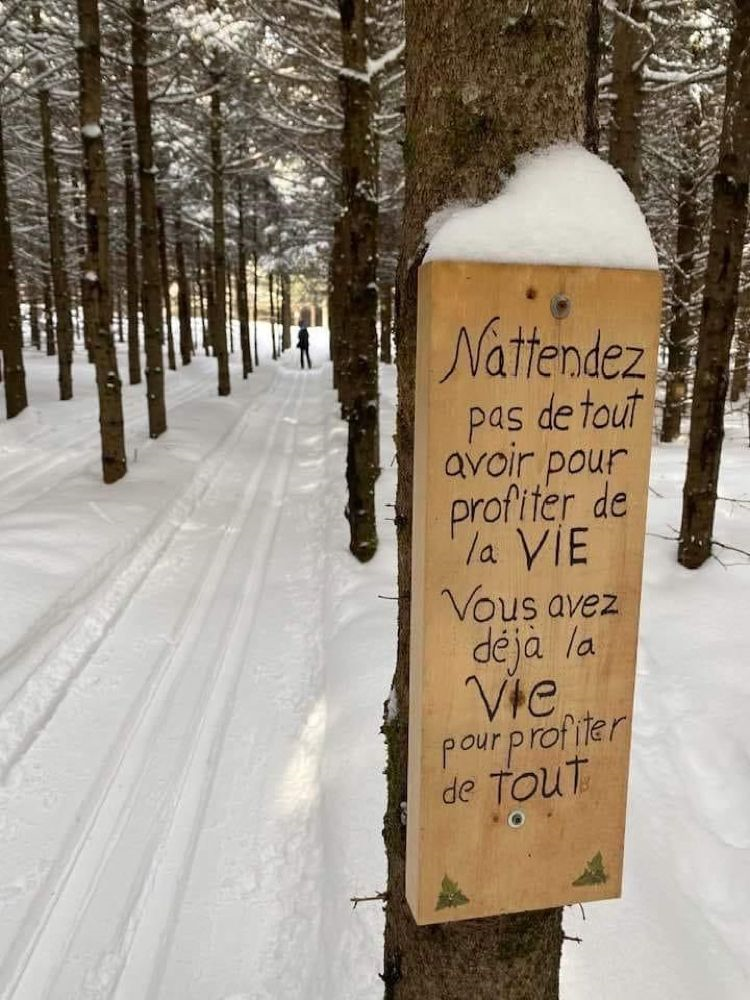 N'attendez
pas de tout
avoir pour
profiter de
la VIE
Vous avez
déjà la
VIE
pour profiter
de TOUT